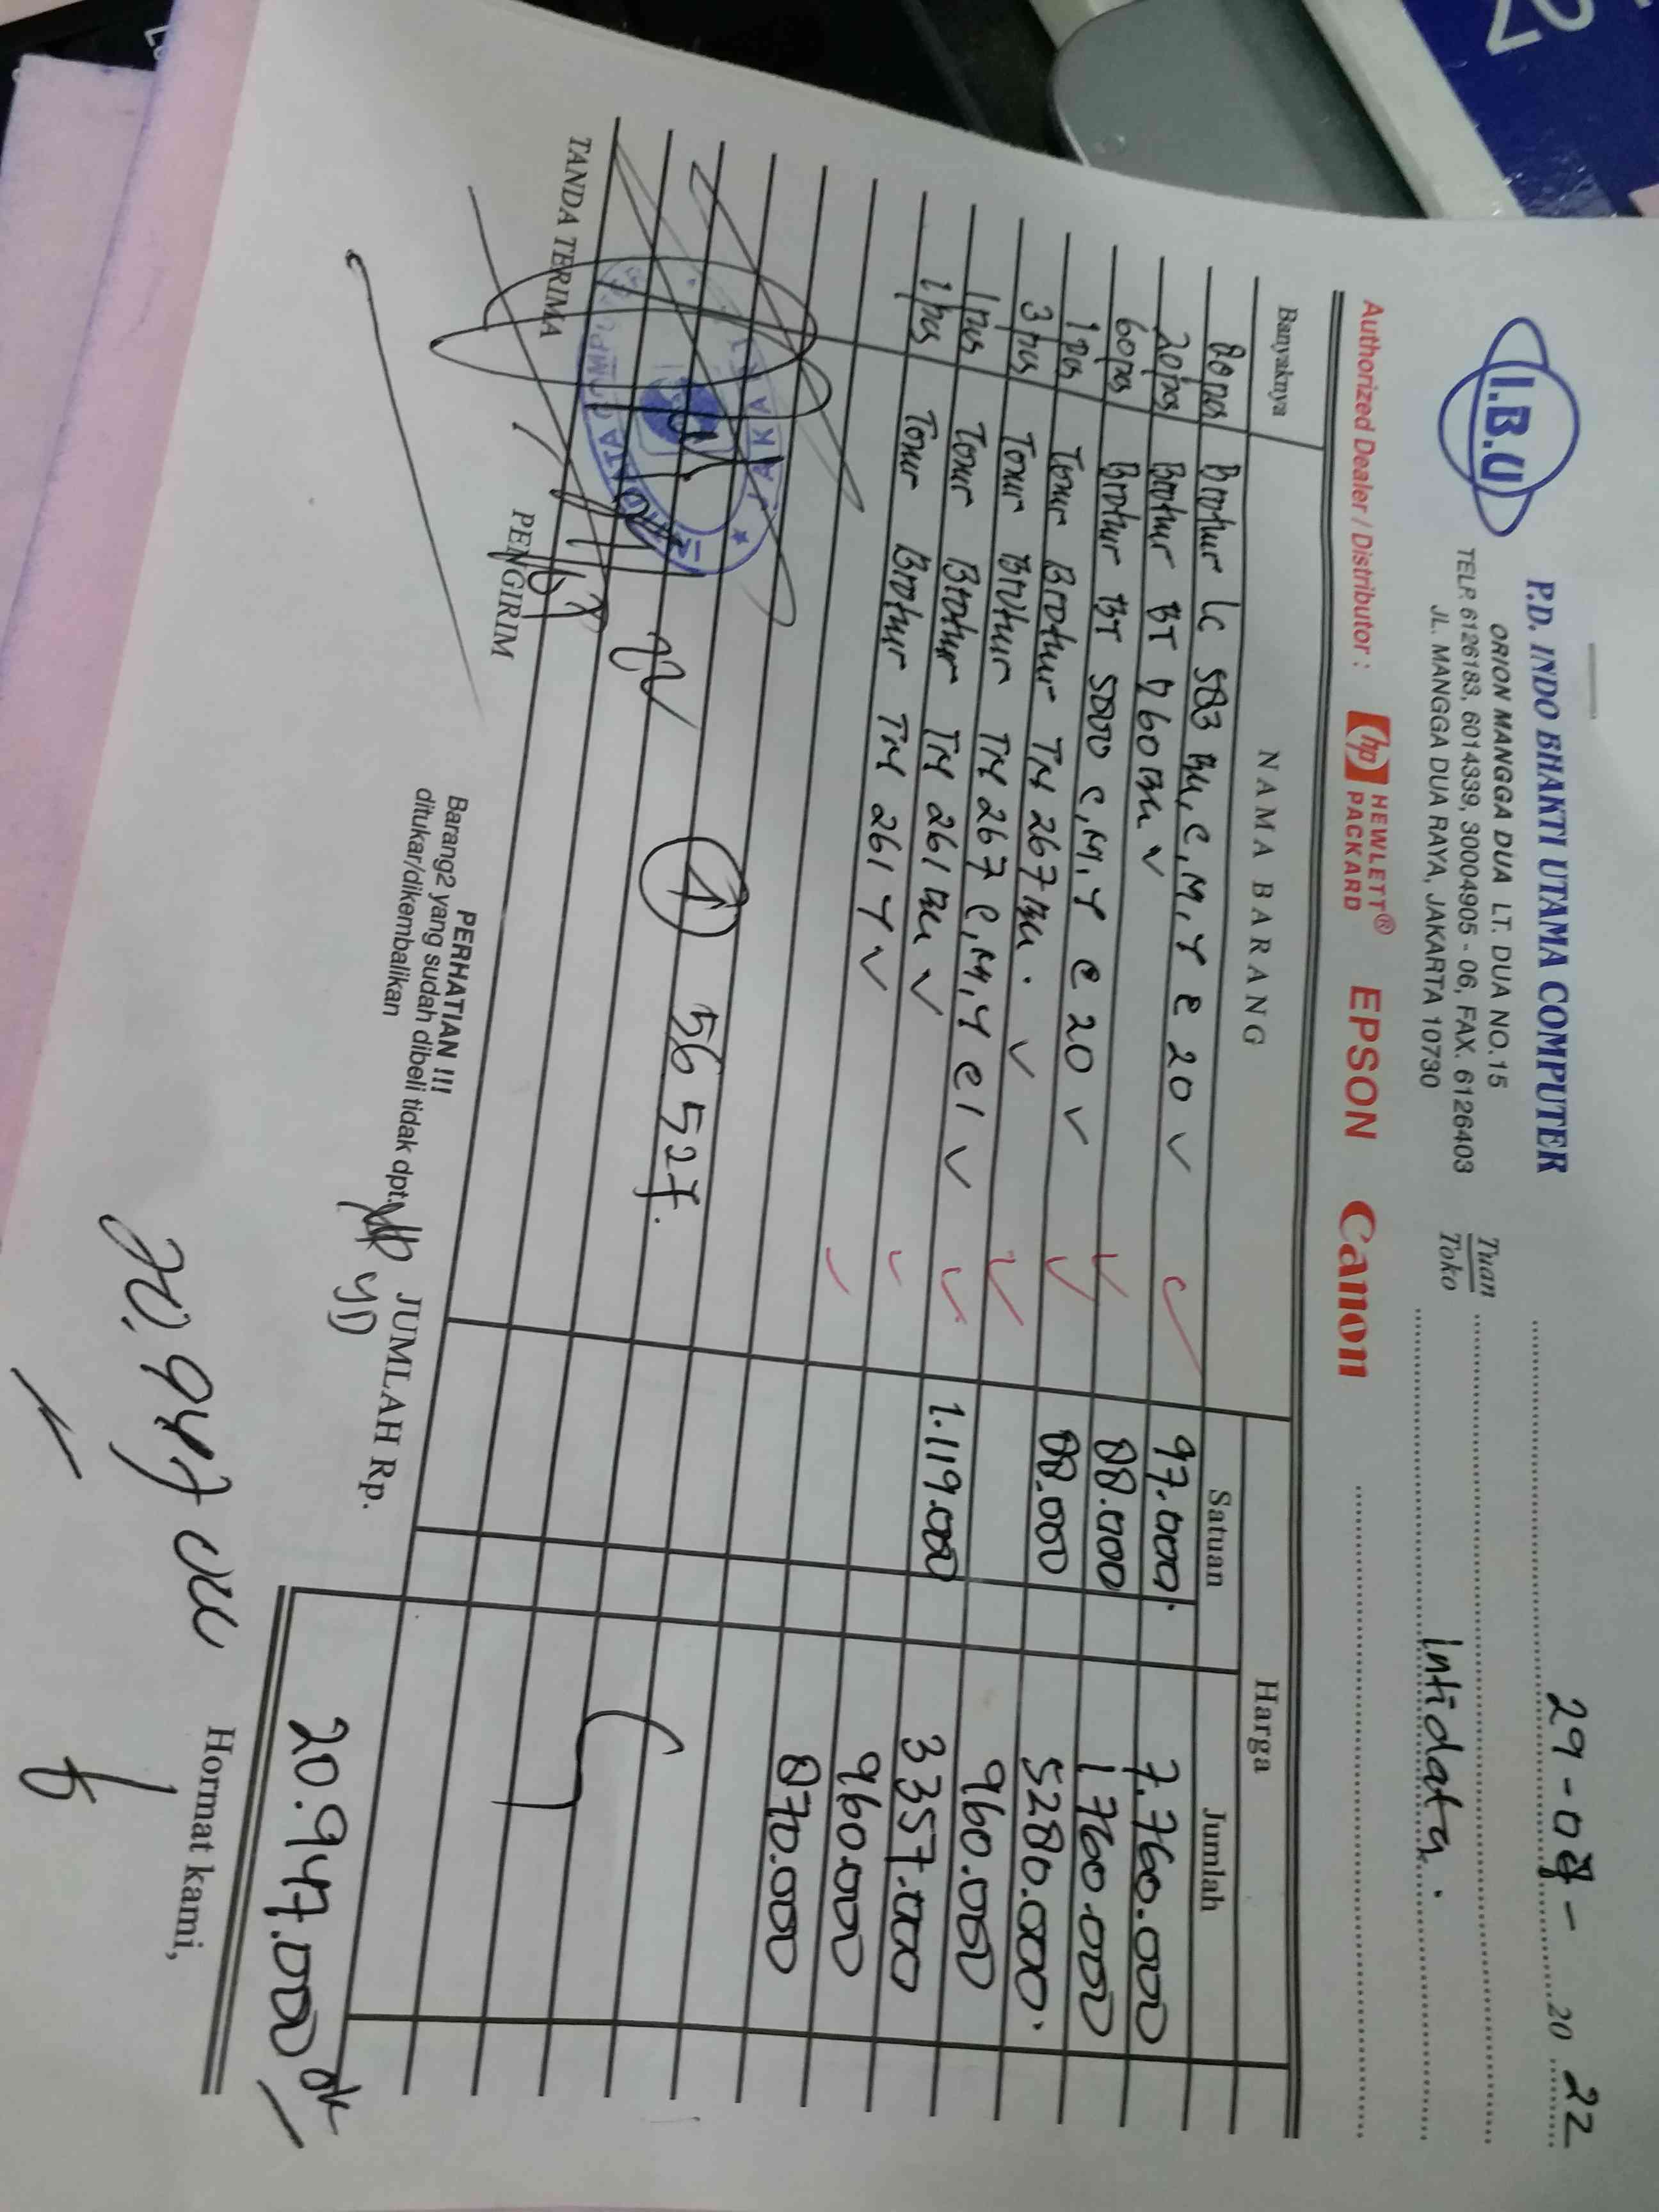 I.B.U
P.D. INDO BHAKTI UTAMA COMPUTER
ORION MANGGA DUA LT. DUA NO.15
TELP. 6126183, 6014339, 30004905 - 06, FAX. 6126403
JL. MANGGA DUA RAYA, JAKARTA 10730
29 - 08 - 20 22
Tuan
Toko
Intidata.
Authorized Dealer / Distributor : hp HEWLETT® PACKARD EPSON Canon
Banyaknya NAMA BARANG Harga
Satuan Jumlah
80 pcs Brother LC 583 BK, C, M, Y @ 20 97.000 7.760.000
20 pcs Brother BT D60BK 88.000 1.760.000
60 pcs Brother BT 5000 C, M, Y @ 20 88.000 5.280.000
1 pcs Toner Brother TN 267 BK. 960.000
3 pcs Toner Brother TN 267 C, M, Y @ 1 1.119.000 3.357.000
1 pcs Toner Brother TN 261 BK 960.000
1 pcs Toner Brother TN 261 Y 870.000
1 56527.
TANDA TERIMA
PENGIRIM
PERHATIAN !!!
Barang2 yang sudah dibeli tidak dpt.
ditukar/dikembalikan
JUMLAH Rp. 20.947.000
Hormat kami,